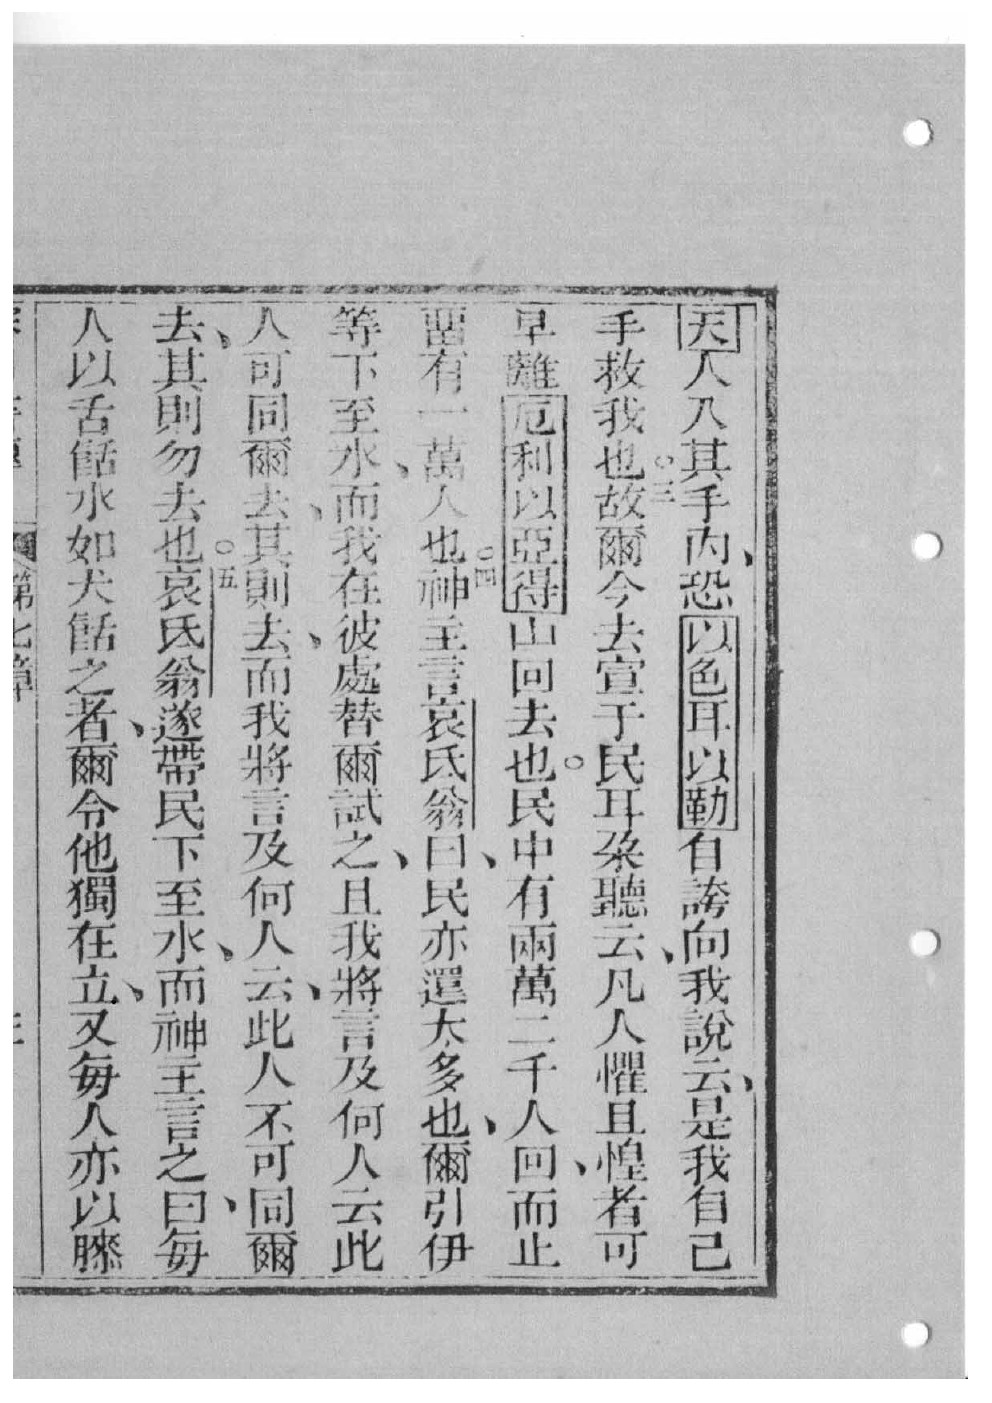 天人入其手內、恐以色耳以勒自誇向我說云、是我自己
手救我也○三故爾今去宣于民耳朶聽云、凡人懼且惶者可
早離厄利以亞得山回去也○民中有兩萬二千人回、而止
畱有一萬人也○四神主言哀氐翁曰、民亦還太多也、爾引伊
等下至水、而我在彼處替爾試之、且我將言及何人云此
人可同爾去、其則去、而我將言及何人云、此人不可同爾
去、其則勿去也○五哀氐翁遂帶民下至水、而神主言之曰、每
人以舌餂水如犬餂之者、爾令他獨在立、又每人亦以膝
第七章